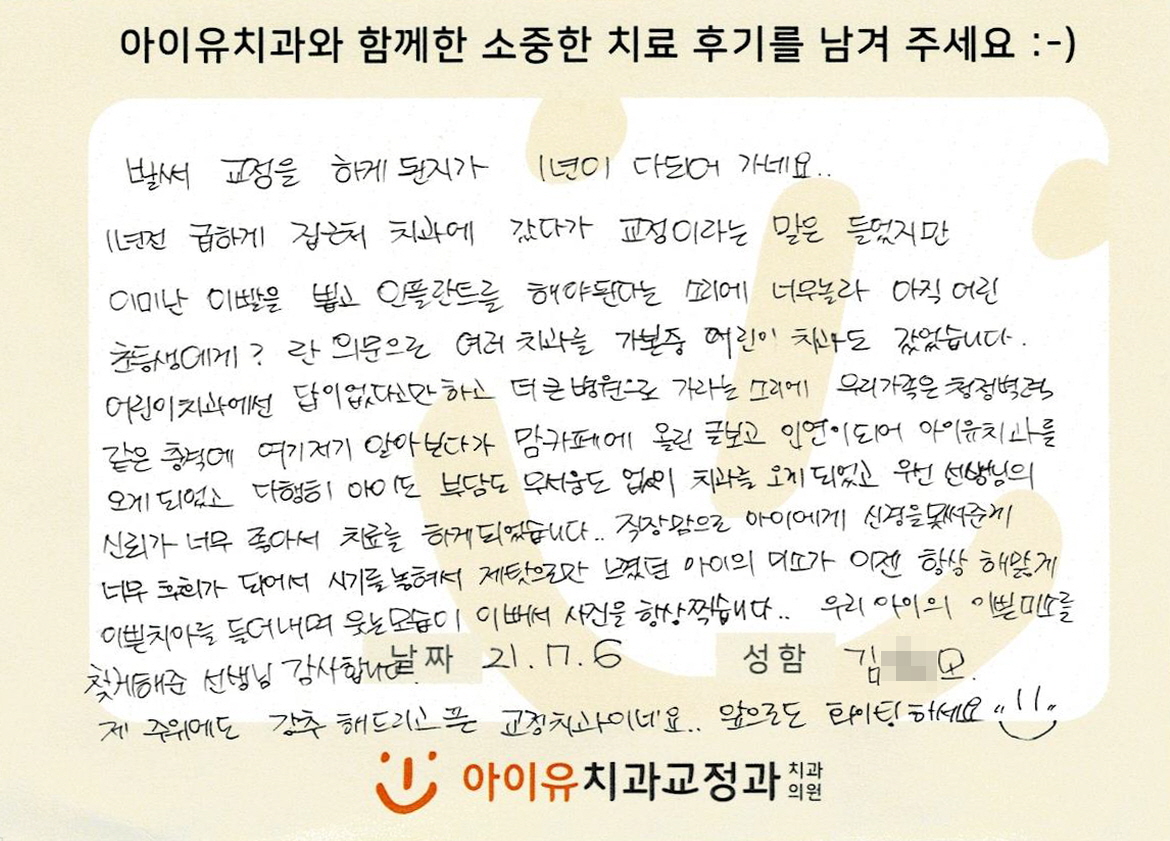 아이유치과와 함께한 소중한 치료 후기를 남겨 주세요 :-)
벌써 교정을 하게 된지가 1년이 다되어 가네요..
1년전 급하게 집근처 치과에 갔다가 교정이라는 말은 들었지만
이미난 이빨을 뽑고 인플란트를 해야된다는 소리에 너무놀라 아직 어린
초등생에게? 란 의문으로 여러 치과를 가본중 어린이 치과도 갔었습니다.
어린이치과에선 답이없다고만 하고 더 큰 병원으로 가라는 소리에 우리가족은 청정벽력
같은 충격에 여기저기 알아본다가 맘카페에 올린 글보고 인연이되어 아이유치과를
오게 되었고 다행히 아이도 부담도 무서움도 없이 치과를 오게 되었고 우선 선생님의
신뢰가 너무 좋아서 치료를 하게되었습니다.. 직장맘으로 아이에게 신경을못써준게
너무 후회가 되어서 시기를 놓쳐서 제탓으로만 느꼈던 아이의 미소가 이젠 항상 해맑게
이쁜치아를 들어내며 웃는모습이 이뻐서 사진을 항상찍습니다.. 우리 아이의 이쁜미소를
찾게해준 선생님 감사합니다.
날짜 21.7.6 성함 김 모.
제 주위에도 강추 해드리고픈 교정치과이네요.. 앞으로도 화이팅 하세요
아이유치과교정과 치과의원